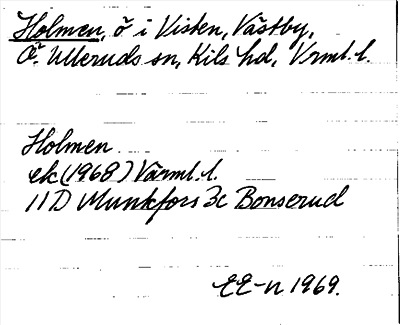 Holmen, ö i Visten, Västby,
Ö. Ulleruds sn, Kils hd, Vrml. l.
Holmen
ek (1968) Värml. l.
11D Munkfors 3c Bonserud
EE-n 1969.